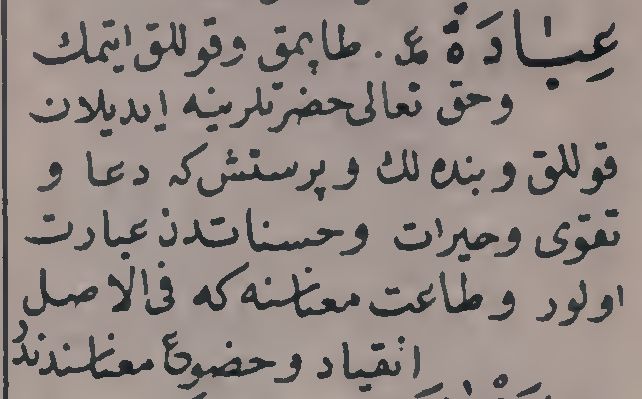 عِبَادَةْ ع. طاپمق وقوللق ایتمك
وحق تعالی حضرتلرینه ایدیلان
قوللق وبنده لك وپرستش که دعا و
تقوی وخیرات وحسناتدن عبارت
اولور وطاعت معناسنه که فی الاصل
انقیاد وخضوع معناسندندر